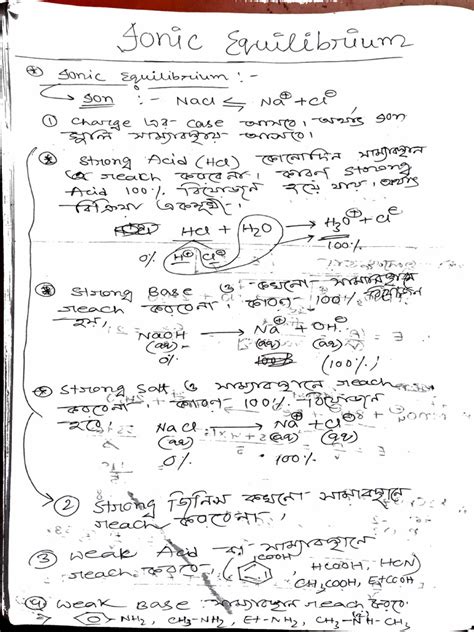 Ionic Equilibrium
Ionic Equilibrium :-
Ion :- NaCl ⇌ Na⊕ + Cl⊖
① Charge এর case আসবে। অর্থাৎ Ion
গুলি সাম্যাবস্থায় আসবে।
Strong Acid (HCl) কোনোদিন সাম্যাবস্থান
এ reach করবেনা। কারণ Strong
Acid 100% বিয়োজন হয়ে যায়। অর্থাৎ
বিক্রিয়া একমুখী।
HCl + H2O → H3O⊕ + Cl⊖
0% H⊕ Cl⊖ 100%
Strong Base ও কখনো সাম্যাবস্থানে
reach করবেনা। কারণ 100% বিয়োজন
হয়।
NaOH → Na⊕ + OH⊖
(aq) (aq) (aq)
0% (100%)
Strong Salt ও সাম্যাবস্থানে reach
করবেনা। কারণ 100% বিয়োজন
হবে
NaCl → Na⊕ + Cl⊖
(aq) (aq) (aq)
0% 100%
② Strong জিনিস কখনো সাম্যাবস্থানে
reach করবেনা।
③ Weak Acid সাম্যাবস্থানে
reach করবে। COOH, HCOOH, HCN
CH3COOH, EtCOOH
④ Weak Base সাম্যাবস্থান reach করবে
NH2, CH3-NH2, Et-NH2, CH3-NH-CH3